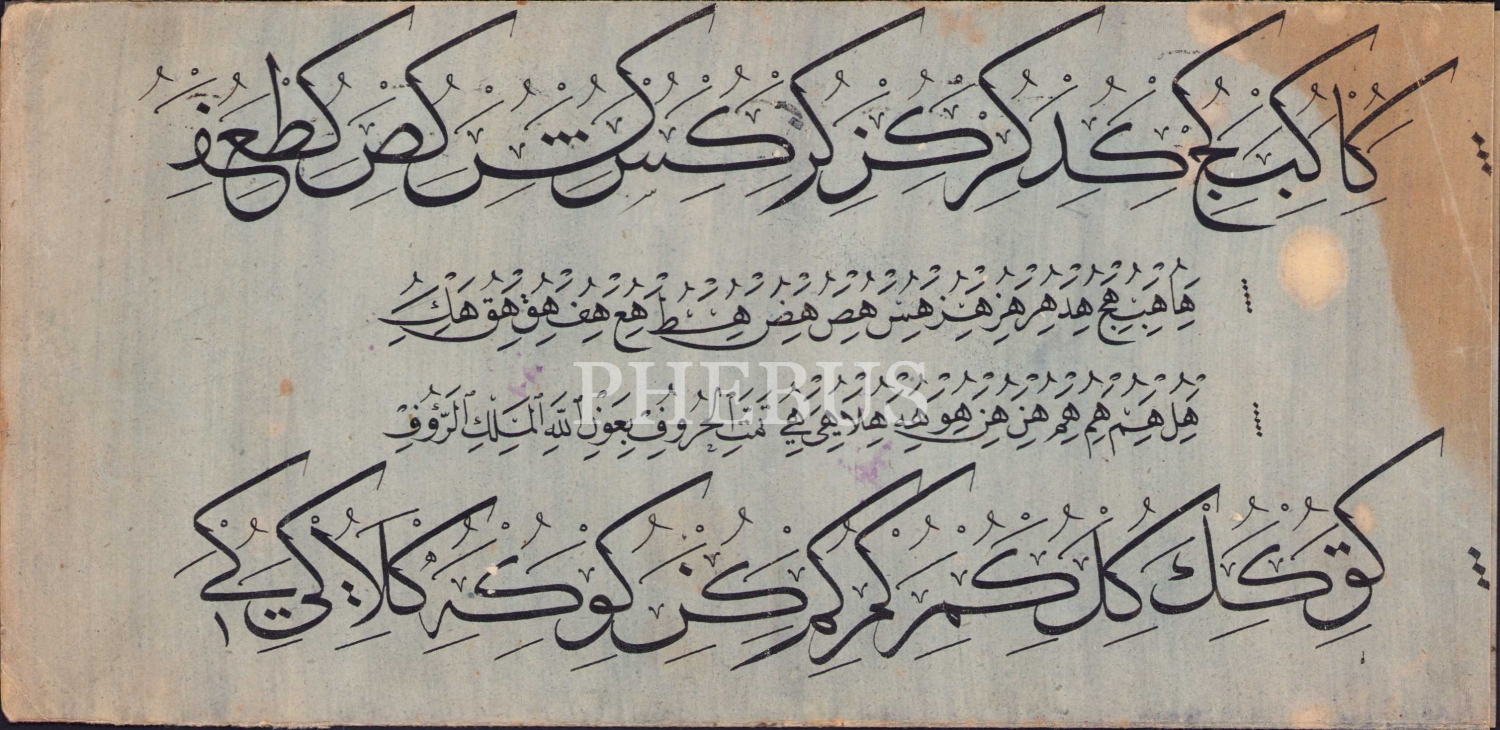 كا كب كج كد كر كز كر كس كش كص كط كع كف
ها هب هج هد هر هز هس هص هض هط هع هف هق هك
هل هم هم هم هن هن هو هه هلا هي هي تمت الحروف بعون الله الملك الرؤف
كق كك كل كم كم كم كن كو كه كلا كي كي
PHEBUS